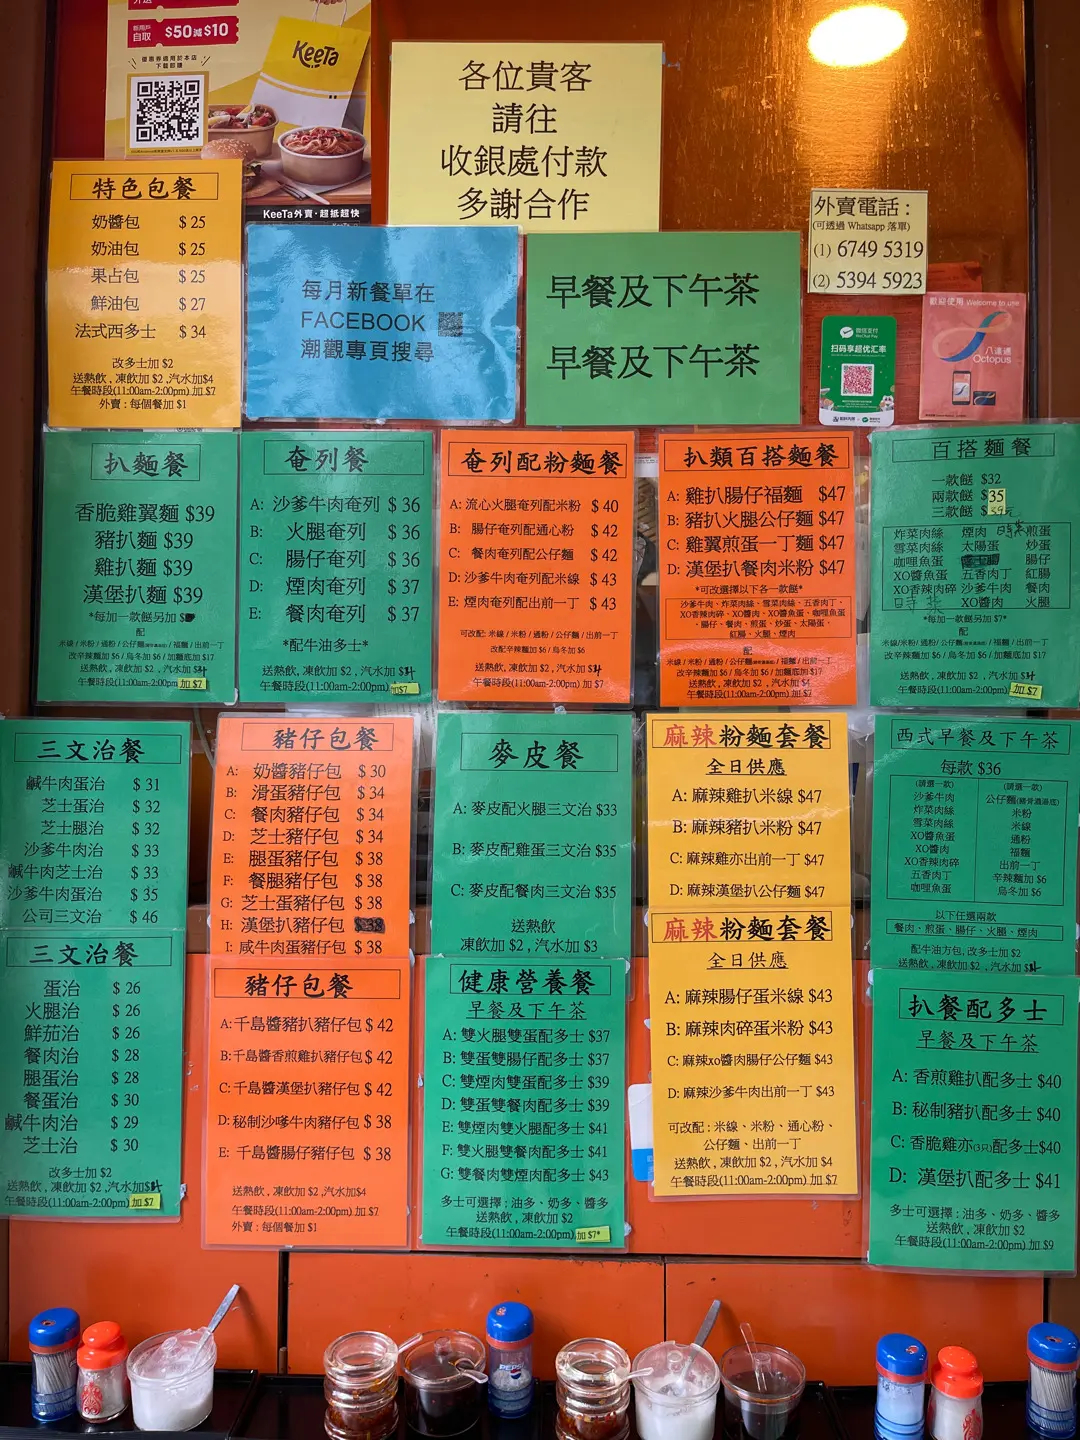 新用戶
自取 $50減$10
優惠券適用於本店
下載即睇
KeeTa
KeeTa外賣·超抵超快
各位貴客
請往
收銀處付款
多謝合作
外賣電話 :
(可透過 Whatsapp 落單)
(1) 6749 5319
(2) 5394 5923
特色包餐
奶醬包 $ 25
奶油包 $ 25
果占包 $ 25
鮮油包 $ 27
法式西多士 $ 34
改多士加 $2
送熱飲 , 凍飲加 $2 ,汽水加$4
午餐時段(11:00am-2:00pm) 加 $7
外賣 : 每個餐加 $1
每月新餐單在
FACEBOOK
潮觀專頁搜尋
早餐及下午茶
早餐及下午茶
微信支付
WeChat Pay
扫码享超优汇率
歡迎使用 Welcome to use
八達通
Octopus
扒麵餐
香脆雞翼麵 $39
豬扒麵 $39
雞扒麵 $39
漢堡扒麵 $39
*每加一款餸另加
配
米線 / 米粉 / 通粉 / 公仔麵 / 福麵 / 出前一丁
改辛辣麵加 $6 / 烏冬加 $6 / 加麵底加 $17
送熱飲 , 凍飲加 $2 , 汽水加 $4
午餐時段(11:00am-2:00pm) 加 $7
奄列餐
A: 沙爹牛肉奄列 $ 36
B: 火腿奄列 $ 36
C: 腸仔奄列 $ 36
D: 煙肉奄列 $ 37
E: 餐肉奄列 $ 37
*配牛油多士*
送熱飲 , 凍飲加 $2 , 汽水加 $4
午餐時段(11:00am-2:00pm) 加$7
奄列配粉麵餐
A: 流心火腿奄列配米粉 $ 40
B: 腸仔奄列配通心粉 $ 42
C: 餐肉奄列配公仔麵 $ 42
D: 沙爹牛肉奄列配米線 $ 43
E: 煙肉奄列配出前一丁 $ 43
可改配 : 米線 / 米粉 / 通粉 / 公仔麵 / 福麵 / 出前一丁
改配辛辣麵加 $6 / 烏冬加 $6
送熱飲 , 凍飲加 $2 , 汽水加 $4
午餐時段(11:00am-2:00pm) 加 $7
扒類百搭麵餐
A: 雞扒腸仔福麵 $47
B: 豬扒火腿公仔麵 $47
C: 雞翼煎蛋一丁麵 $47
D: 漢堡扒餐肉米粉 $47
*可改選擇以下各一款餸*
沙爹牛肉、炸菜肉絲、雪菜肉絲、五香肉丁、
XO香辣肉碎、XO醬魚蛋、XO醬肉、咖哩魚蛋
、腸仔、餐肉、煎蛋、炒蛋、太陽蛋、
紅腸、火腿、煙肉
配
米線 / 米粉 / 通粉 / 公仔麵 / 福麵 / 出前一丁
改辛辣麵加 $6 / 烏冬加 $6 / 加麵底加 $17
送熱飲 , 凍飲加 $2 , 汽水加 $4
午餐時段(11:00am-2:00pm) 加 $7
百搭麵餐
一款餸 $32
兩款餸 $35
三款餸 $39
炸菜肉絲 煙肉 煎蛋
雪菜肉絲 太陽蛋 炒蛋
咖哩魚蛋 腸仔
XO醬魚蛋 五香肉丁 紅腸
XO香辣肉碎 沙爹牛肉 餐肉
XO醬肉 火腿
*每加一款餸加 $7*
配
米線/米粉/ 通粉 / 公仔麵 / 福麵 / 出前一丁
改辛辣麵加 $6 / 烏冬加 $6 / 加麵底加 $17
送熱飲 , 凍飲加 $2 , 汽水加 $4
午餐時段(11:00am-2:00pm) 加 $7
三文治餐
鹹牛肉蛋治 $ 31
芝士蛋治 $ 32
芝士腿治 $ 32
沙爹牛肉治 $ 33
鹹牛肉芝士治 $ 33
沙爹牛肉蛋治 $ 35
公司三文治 $ 46
三文治餐
蛋治 $ 26
火腿治 $ 26
鮮茄治 $ 26
餐肉治 $ 28
腿蛋治 $ 28
餐蛋治 $ 30
鹹牛肉治 $ 29
芝士治 $ 30
改多士加 $2
送熱飲 , 凍飲加 $2 , 汽水加$4
午餐時段(11:00am-2:00pm) 加 $7
豬仔包餐
A: 奶醬豬仔包 $ 30
B: 滑蛋豬仔包 $ 34
C: 餐肉豬仔包 $ 34
D: 芝士豬仔包 $ 34
E: 腿蛋豬仔包 $ 38
F: 餐腿豬仔包 $ 38
G: 芝士蛋豬仔包 $ 38
H: 漢堡扒豬仔包 $ 38
I: 咸牛肉蛋豬仔包 $ 38
豬仔包餐
A:千島醬豬扒豬仔包 $ 42
B:千島醬香煎雞扒豬仔包 $ 42
C:千島醬漢堡扒豬仔包 $ 42
D:秘制沙嗲牛肉豬仔包 $ 38
E: 千島醬腸仔豬仔包 $ 38
送熱飲 , 凍飲加 $2 ,汽水加$4
午餐時段(11:00am-2:00pm) 加 $7
外賣 : 每個餐加 $1
麥皮餐
A: 麥皮配火腿三文治 $33
B: 麥皮配雞蛋三文治 $35
C: 麥皮配餐肉三文治 $35
送熱飲
凍飲加 $2 , 汽水加 $3
健康營養餐
早餐及下午茶
A: 雙火腿雙蛋配多士 $37
B: 雙蛋雙腸仔配多士 $37
C: 雙煙肉雙蛋配多士 $39
D: 雙蛋雙餐肉配多士 $39
E: 雙煙肉雙火腿配多士 $41
F: 雙火腿雙餐肉配多士 $41
G: 雙餐肉雙煙肉配多士 $43
多士可選擇 : 油多、奶多、醬多
送熱飲 , 凍飲加 $2
午餐時段(11:00am-2:00pm) 加 $7*
麻辣粉麵套餐
全日供應
A: 麻辣雞扒米線 $47
B: 麻辣豬扒米粉 $47
C: 麻辣雞亦出前一丁 $47
D: 麻辣漢堡扒公仔麵 $47
麻辣粉麵套餐
全日供應
A: 麻辣腸仔蛋米線 $43
B: 麻辣肉碎蛋米粉 $43
C: 麻辣xo醬肉腸仔公仔麵 $43
D: 麻辣沙爹牛肉出前一丁 $43
可改配 : 米線、米粉、通心粉、
公仔麵、出前一丁
送熱飲 , 凍飲加 $2 , 汽水加 $4
午餐時段(11:00am-2:00pm) 加 $7
西式早餐及下午茶
每款 $36
(請選一款)
沙爹牛肉
炸菜肉絲
雪菜肉絲
XO醬魚蛋
XO醬肉
XO香辣肉碎
五香肉丁
咖哩魚蛋
(請選一款)
公仔麵(豬骨濃湯底)
米粉
米線
通粉
福麵
出前一丁
辛辣麵加 $6
烏冬加 $6
以下任選兩款
餐肉、煎蛋、腸仔、火腿、煙肉
配牛油方包, 改多士加 $2
送熱飲 , 凍飲加 $2 , 汽水加 $4
扒餐配多士
早餐及下午茶
A: 香煎雞扒配多士 $40
B: 秘制豬扒配多士 $40
C: 香脆雞亦(3只)配多士$40
D: 漢堡扒配多士 $41
多士可選擇 : 油多、奶多、醬多
送熱飲 , 凍飲加 $2
午餐時段(11:00am-2:00pm) 加 $9
PEPSI